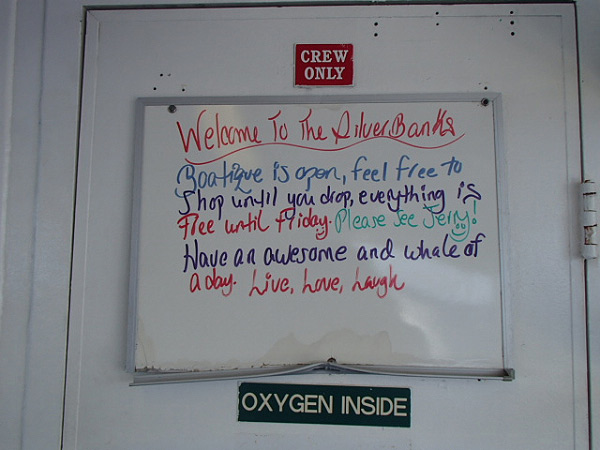 CREW
ONLY
Welcome To The Silver Banks
Boatique is open, feel free to
shop until you drop, everything is
Free until Friday. Please see Jerry!
Have an awesome and whale of
a day. Live, Love, Laugh
OXYGEN INSIDE